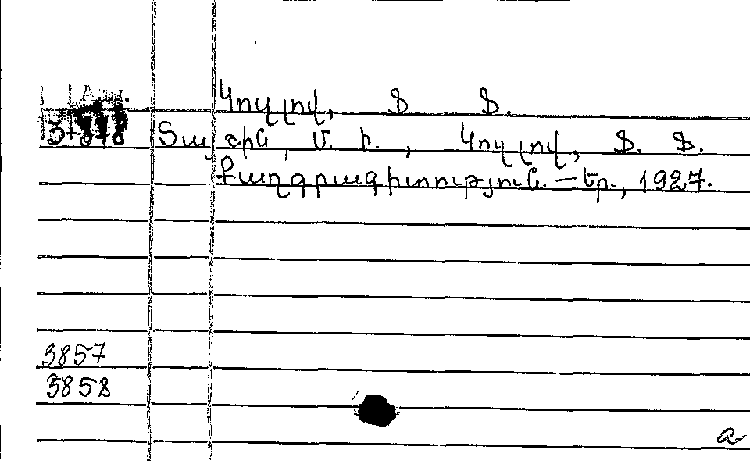 Կոզլով, Ֆ Ֆ.
Տայցին, Մ. Ի., Կոզլով, Ֆ. Ֆ.
Քաղգրագիտություն. — Եր., 1927.
3857
3858
a